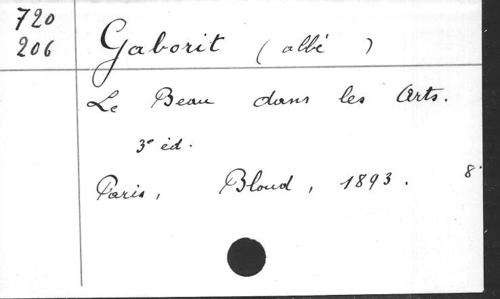 720
206
Gaborit (abbé)
Le Beau dans les Arts.
3e éd.
Paris, Bloud, 1893. 8°